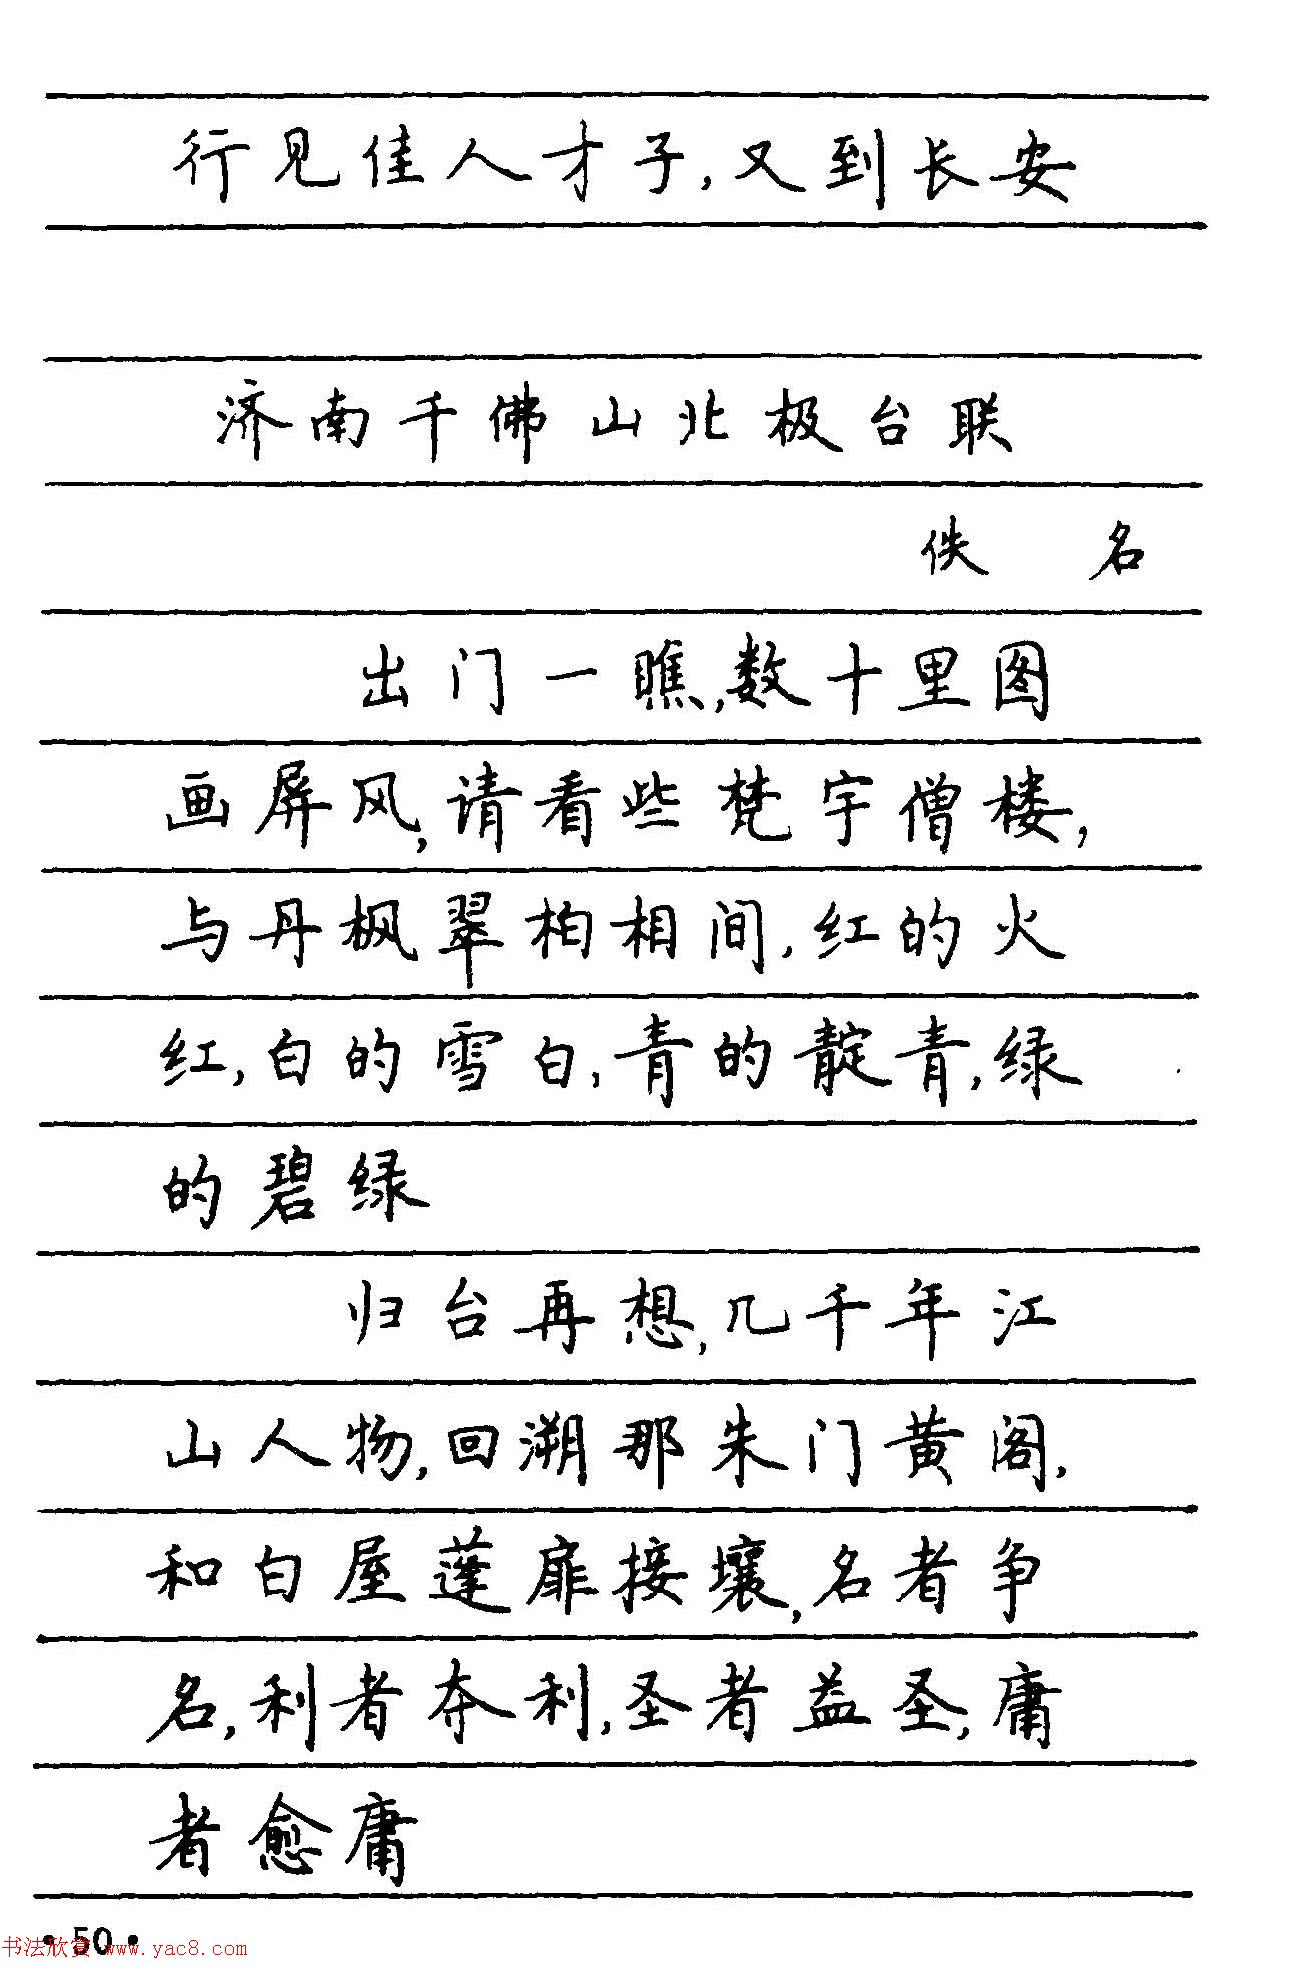 行见佳人才子,又到长安
济南千佛山北极台联
佚 名
出门一瞧,数十里图
画屏风,请看些梵宇僧楼,
与丹枫翠柏相间,红的火
红,白的雪白,青的靛青,绿
的碧绿
归台再想,几千年江
山人物,回溯那朱门黄阁,
和白屋蓬扉接壤,名者争
名,利者夺利,圣者益圣,庸
者愈庸
·50·
书法欣赏 www.yac8.com